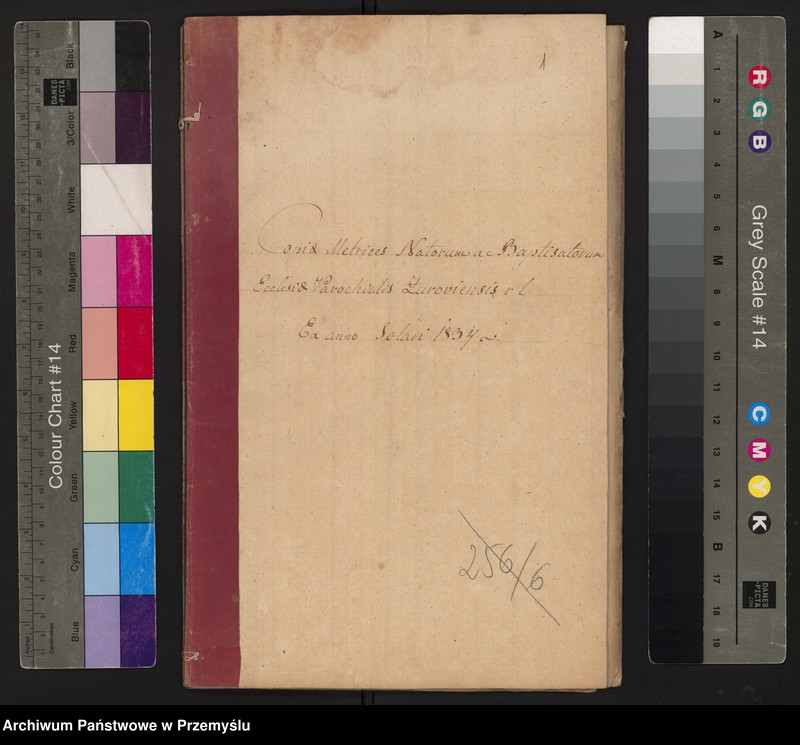 1
Copia Metrices Natorum ac Baptisatorum
Ecclesiæ Parochialis Żuroviensis r. l.
Ex anno Solari 1834
256/6
Colour Chart #14
Black
3/Color
White
Magenta
Red
Yellow
Green
Cyan
Blue
Inches
Centimetres
DANES
-PICTA
.COM
Grey Scale #14
R
G
B
C
M
Y
K
A
1
2
3
4
5
6
M
8
9
10
11
12
13
14
15
B
17
18
19
DANES
-PICTA
.COM
Archiwum Państwowe w Przemyślu